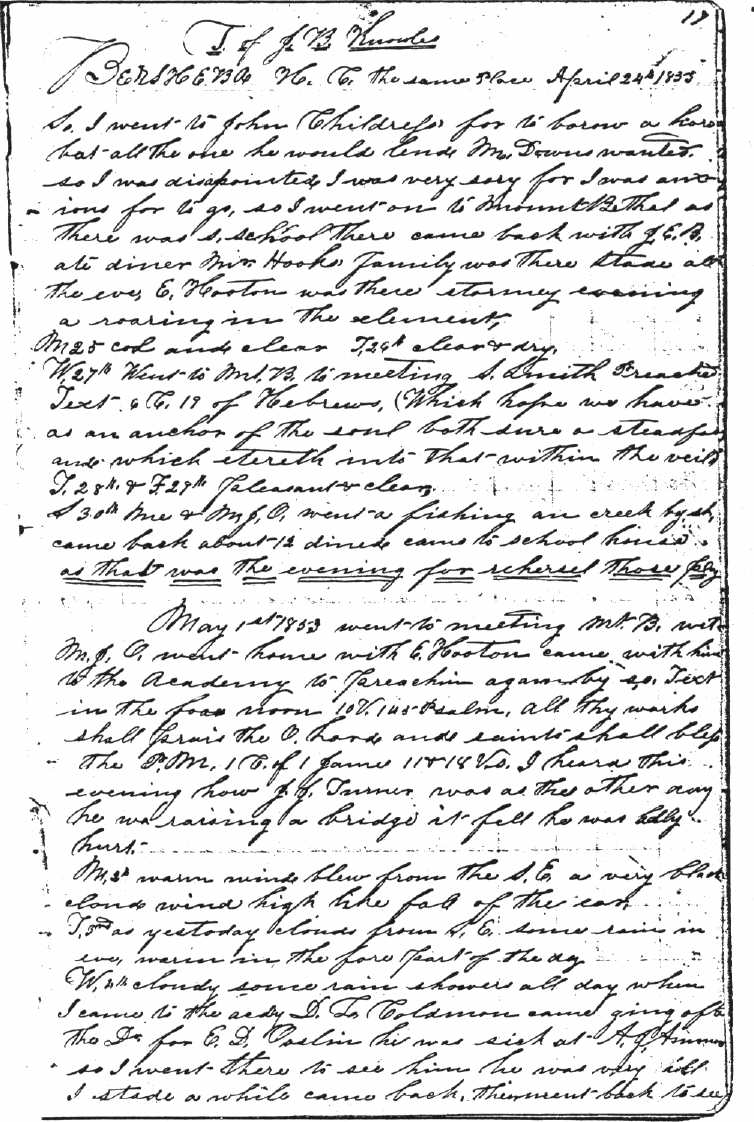 19
T. of J. B. Knowles
BERSHEBA H. C. the same place April 24th 1853
So, I went to John Childress for to borow a hors
but all the one he would lend Mr. Downs wanted.
so I was disapointed, I was very sory for I was anx
ious for to go, so I went on to Mount Bethel as
there was s. school there came back with J. E. B.
ate diner Mr. Hooks family was there stade all
the eve, E. Hooton was there stormey evening
a roaring in the element,
M 25 col and clear T, 26th clear & dry.
W, 27th Went to Mt. B. to meeting S. Smith Preache
Text 6 C. 19 of Hebrews, (Which hope we have
as an anchor of the soul both sure a steadfas
and which etereth into that within the veil)
T. 28th & F. 29th Pleasant & clear,
S 30th Me & M. J. O. went a fishing an creek
came back about 12 dined came to school house
as that was the evening for rehersel those
May 1st 1853 went to meeting Mt. B. with
M. J. O. went home with E. Hooton came with him
to the Academy to Preachin again by so. Text
in the foar noon 10 V. 145 Psalm, All thy works
shall prais the O. Lord and saints shall bless
the P. M. 1 C. of 1 Jame 17 & 18 Vs. I heard this
evening how J. J. Turner was as the other day
he wa raising a bridge it fell he was badly
hurt.
M, 2d warm wind blew from the S. E. a very black
cloud wind high like fall of the ear,
T, 3rd as yestoday clouds from S. E. some rain in
eve, warm in the fore part of the day
W, 4th cloudy some rain showers all day when
I came to the acdy D. L. Coldmon came ging afte
the Dr. for E. D. Poslin he was sick at A. J.
so I went there to see him he was very ill
I stade a while came back, then went back to see